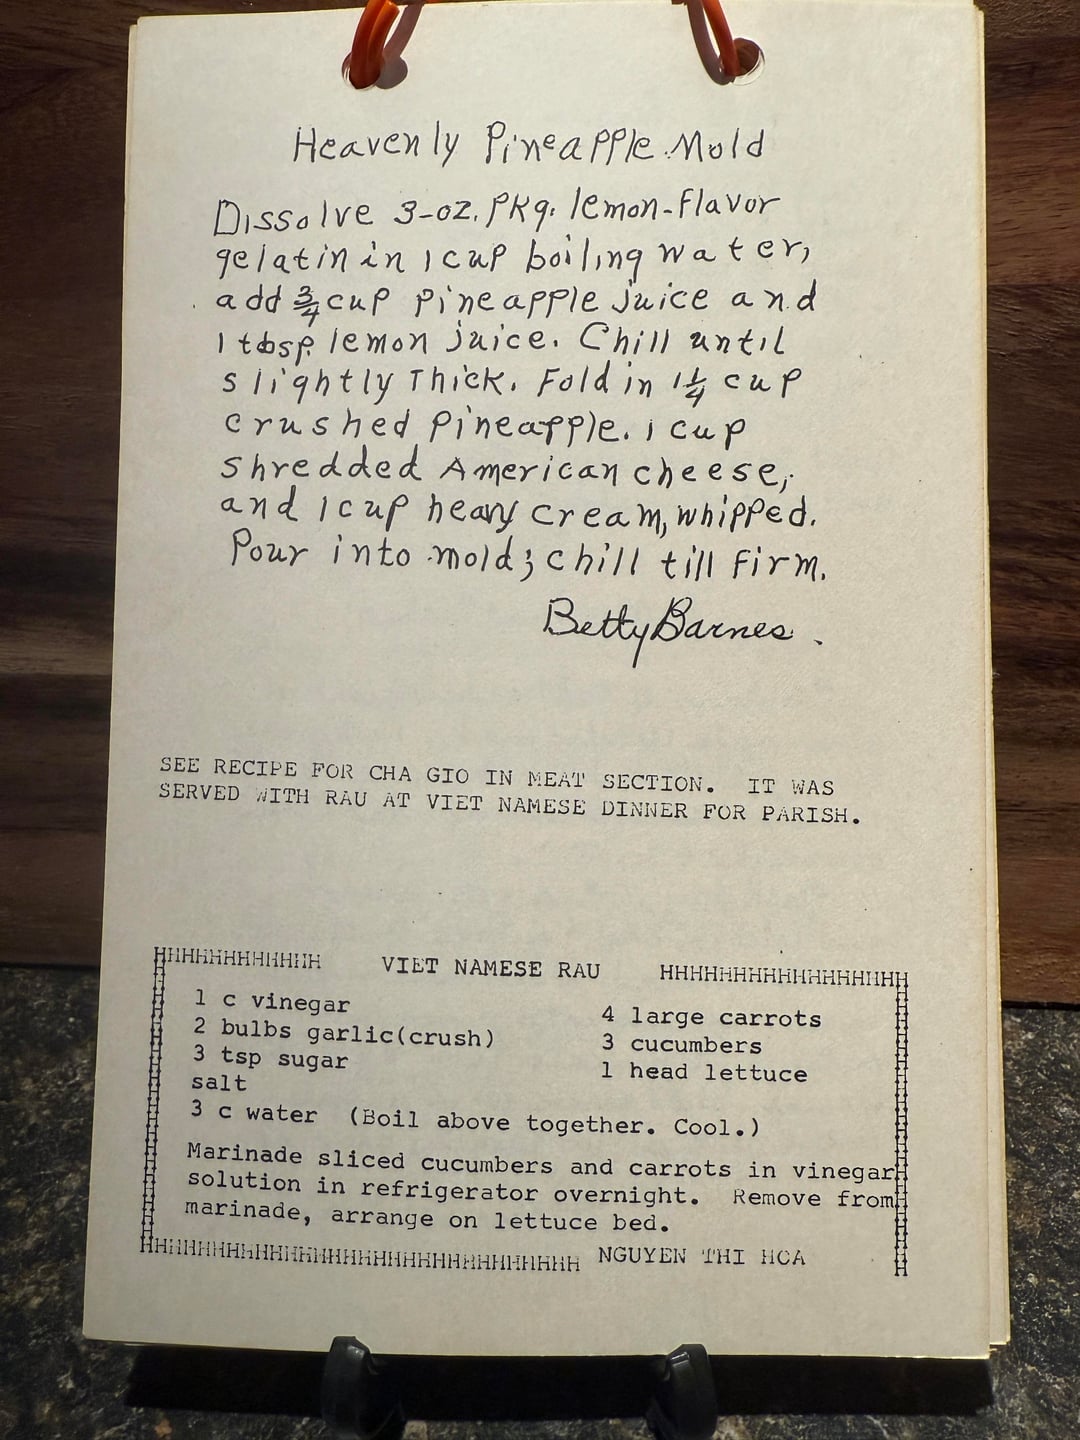 Heavenly Pineapple Mold
Dissolve 3-oz. pkg. lemon-flavor
gelatin in 1 cup boiling water,
add 3/4 cup pineapple juice and
1 tbsp. lemon juice. Chill until
slightly Thick. Fold in 1 1/4 cup
crushed pineapple. 1 cup
shredded American cheese,
and 1 cup heavy cream, whipped.
Pour into mold; chill till firm.
Betty Barnes.
SEE RECIPE FOR CHA GIO IN MEAT SECTION. IT WAS
SERVED WITH RAU AT VIET NAMESE DINNER FOR PARISH.
VIET NAMESE RAU
1 c vinegar
2 bulbs garlic(crush)
3 tsp sugar
salt
3 c water (Boil above together. Cool.)
4 large carrots
3 cucumbers
1 head lettuce
Marinade sliced cucumbers and carrots in vinegar
solution in refrigerator overnight. Remove from
marinade, arrange on lettuce bed.
NGUYEN THI HOA